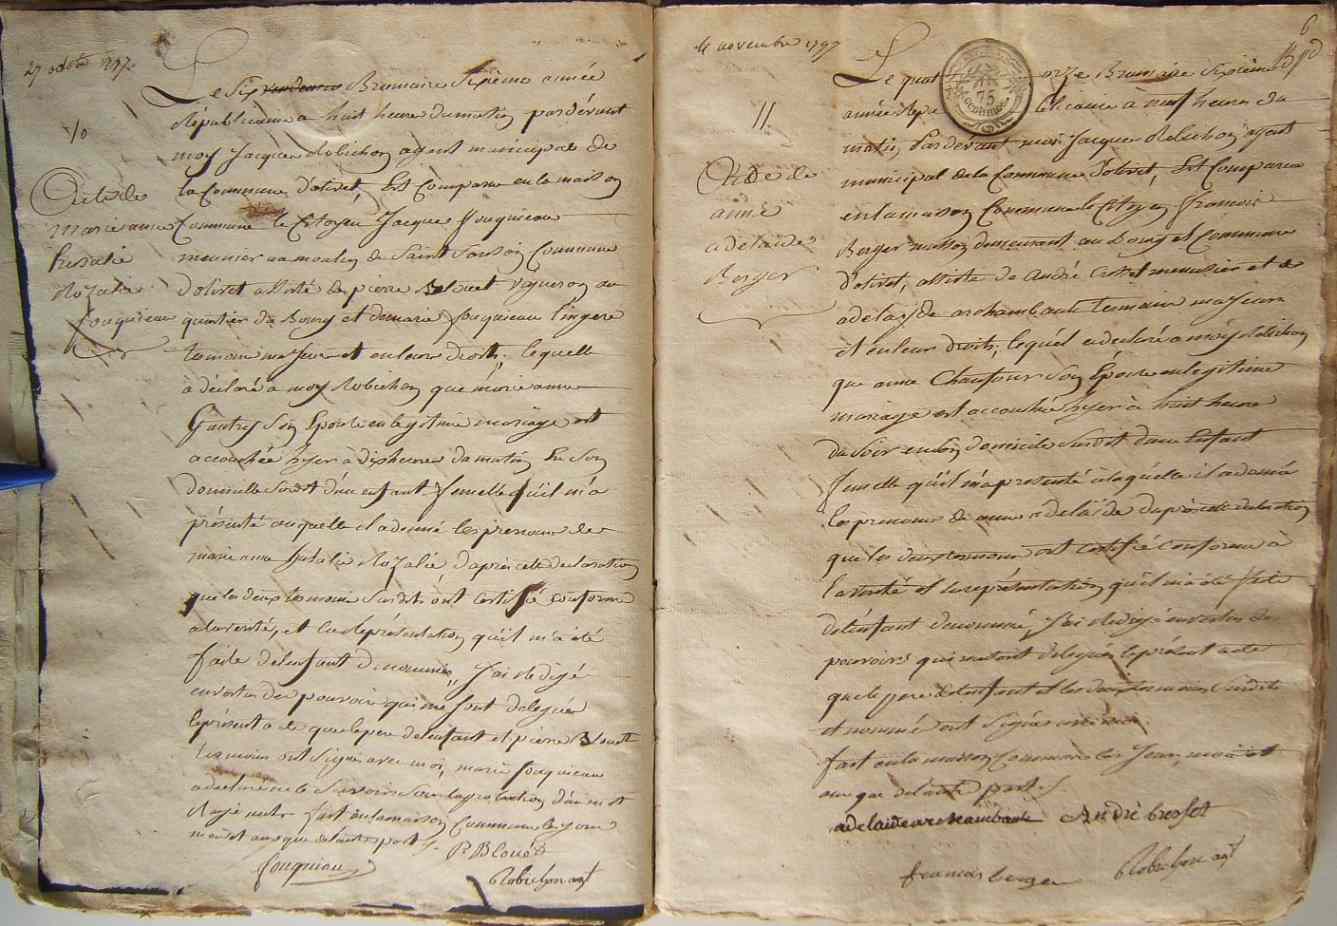 27 octobre 1797
10
Acte de
marieanne
Rozalie
fouquieau
Le Six Brumaire Sixième année
républicaine a huit heure du matin pardévant
moy Jacque Robichon agent municipal de
la Commune d'olivet, Est Comparu en la maison
Commune le Citoyen Jacque fouquieau
meunier au moulin de Saint Sanson Commune
d'olivet assisté de pierre Blouet vigneron au
quartier du Bourg et de marie fouquieau lingere
temoins majeur et en leurs droits, lequelle
à déclaré a moy Robichon que marie anne
Gautry Son Epouse en legitime mariage est
accouchée hyer a dix heures du matin En Son
domicille Susdit d'un enfant femelle qu'il m'a
présenté auquelle il a donné les prenoms de
marie anne Rozalie d'après cette declaration
que les deux temoins Susdits ont certifié conforme
a la verité, et la représentation qu'il m'a été
faite de l'enfant denommée, J'ai rédigé
en vertus des pouvoirs qui me sont délégués
le présent acte que le pere de l'enfant et pierre Blouet
temoins ont signés avec moi, marie fouquieau
a declaré ne le Savoir
fait en la maison Commune les jour
mois et ans que de l'autre part
P. Blouet
fouquieau
Robichon agt
6
4 novembre 1797
11
Acte de
anne
adelaide
Berger
Le quatorze Brumaire Sixième
année Républicaine à neuf heures du
matin, Pardevant moi Jacque Robichon agent
municipal de la Commune d'olivet, Est Comparu
en la maison Commune le Citoyen francois
Berger masson demeurant au bourg et Commune
d'olivet, assisté de André Brosset menuisier et de
adelayde archambault temoins majeurs
et en leur droits, lequel a declaré a moy Robichon
que anne Chaufour Son Epouse en legitime
mariage est accouchée hyer à huit heure
du Soir en son domicile Susdit d'une Enfant
femelle qu'il m'a presenté à laquelle il a donné
les prenoms de anne adelaïde d'après cette declaration
que les deux temoins ont certifié conforme à
la verité et la représentation qu'il m'a été faite
de l'enfant denommé, J'ai rédigé en vertus des
pouvoirs qui me sont délégués le présent acte
que le pere de l'enfant et les deux temoins Susdits
et nommé ont signés avec moi
fait en la maison Commune les Jour, mois et
an que de l'autre part
adelaide archambault André brosset
francois berger Robichon agt